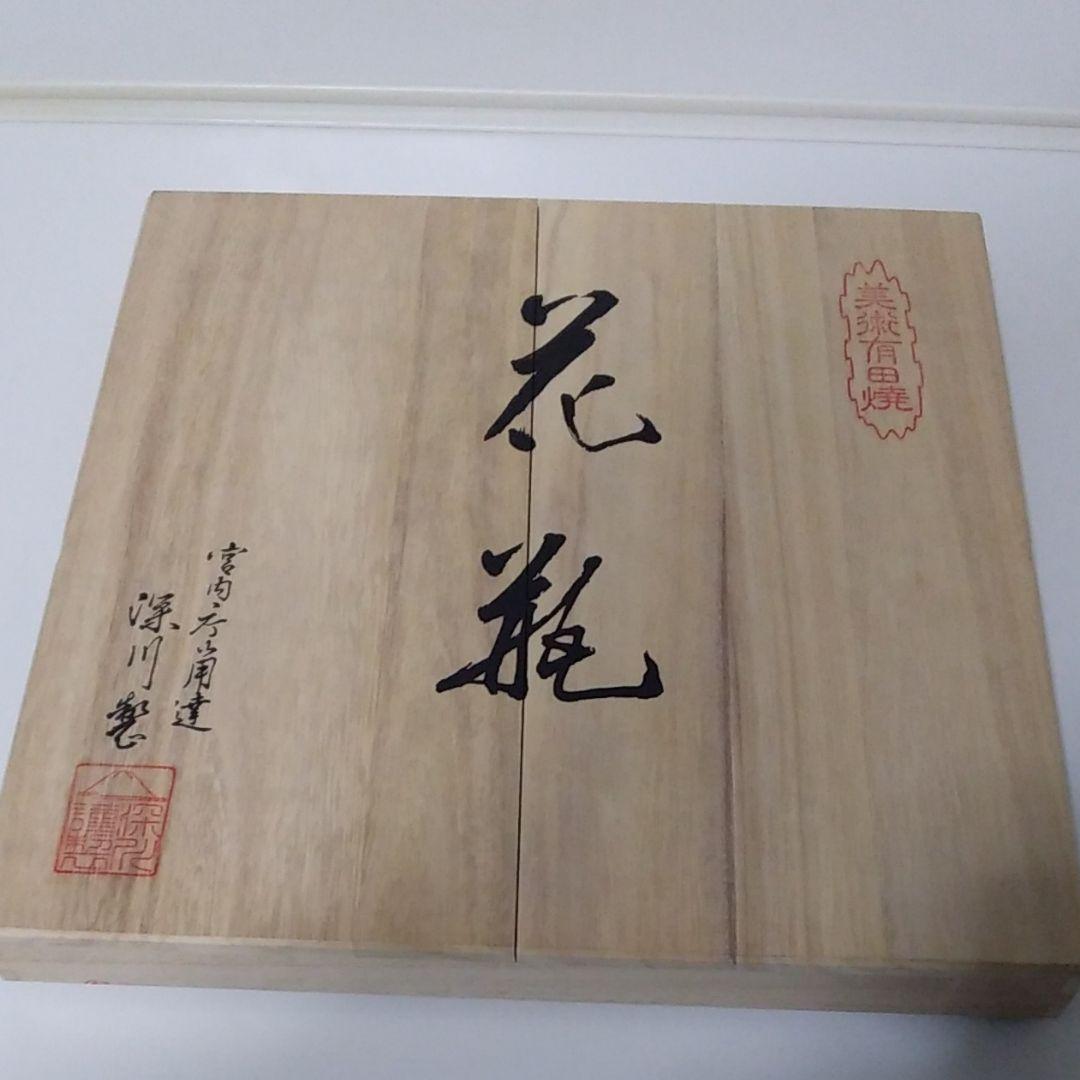 美術有田燒
花瓶
宮内庁御用達
深川製
深川謹製